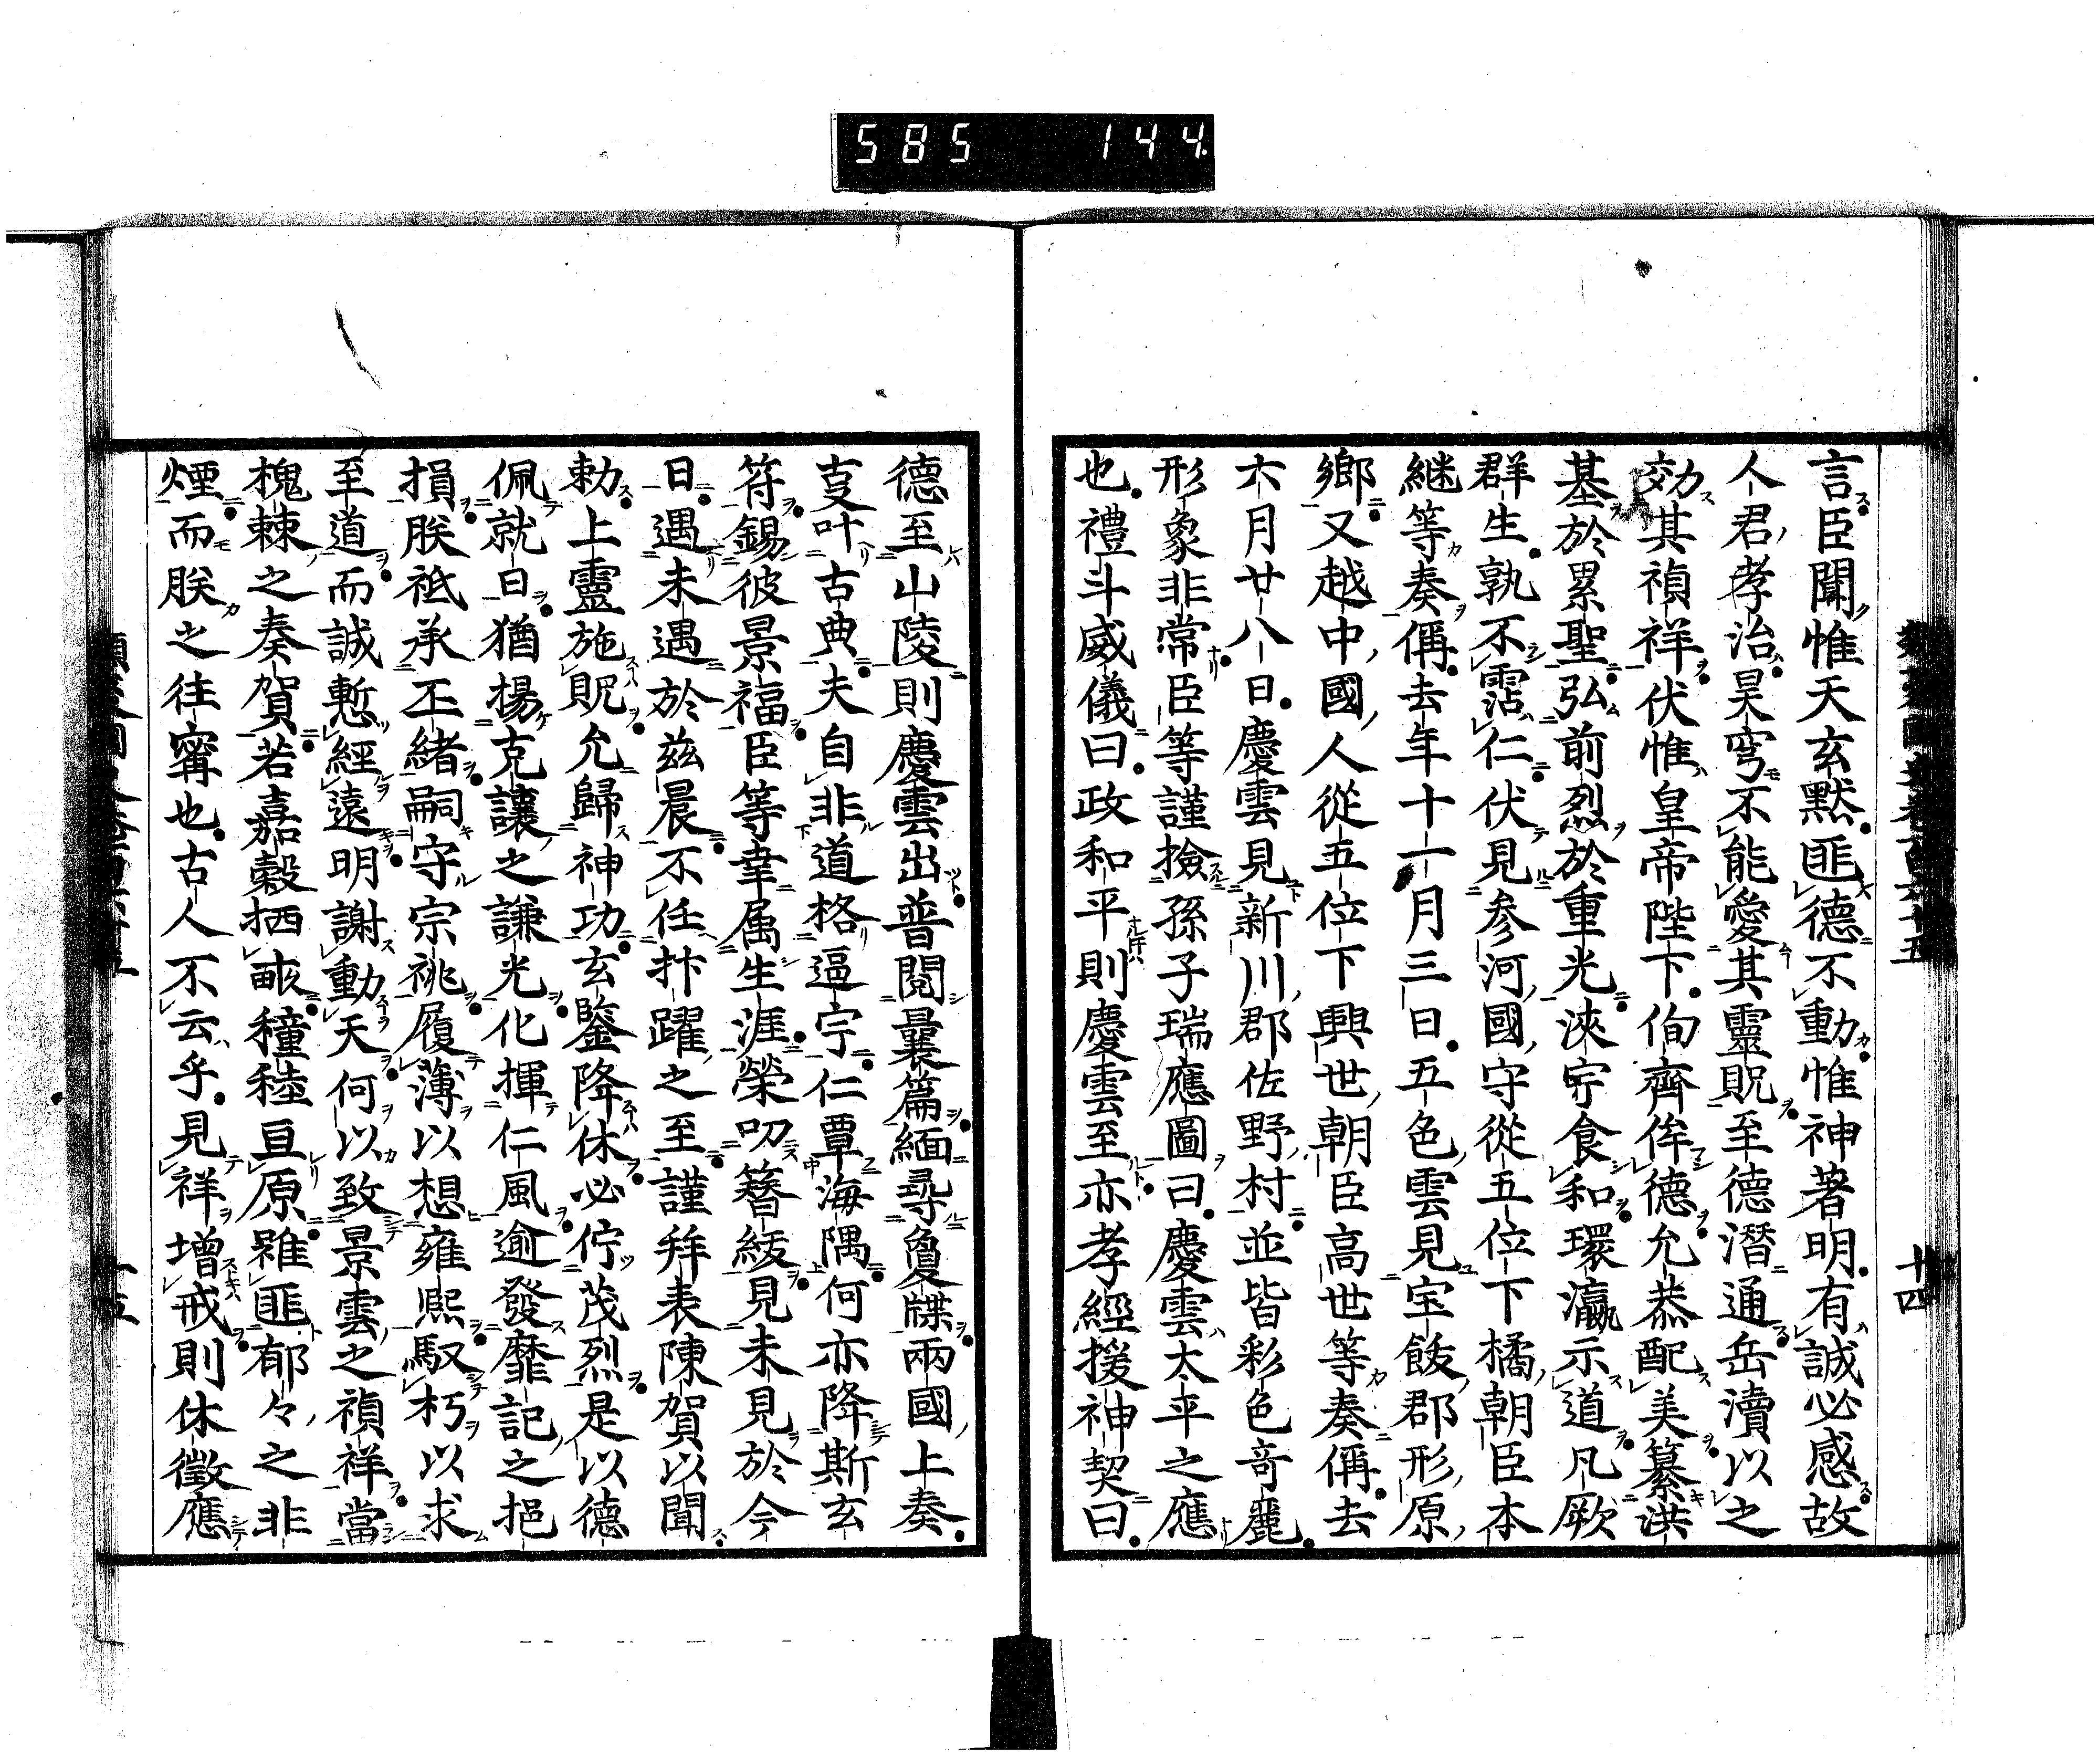 585 144
言臣聞惟天玄默匪德不動惟神著明有誠必感故
人君孝治昊穹不能愛其靈貺至德潛通岳瀆以之
効其禎祥伏惟皇帝陛下侚齊侔德允恭配美纂洪
基於累聖弘前烈於重光浹宇食和環瀛示道凡厥
群生孰不霑仁伏見參河國守從五位下橘朝臣本
継等奏稱去年十一月三日五色雲見宝飯郡形原
鄉又越中國人從五位下興世朝臣高世等奏稱去
六月廿八日慶雲見新川郡佐野村並皆彩色奇麗
形象非常臣等謹撿孫子瑞應圖曰慶雲太平之應
也禮斗威儀曰政和平則慶雲至亦孝經援神契曰
德至山陵則慶雲出普閱曩篇緬尋敻牒兩國上奏
叶古典夫自非道格逼宇仁覃海隅何亦降斯玄
符錫彼景福臣等幸属生涯榮叨簪紱見未見於今
日遇未遇於兹晨不任抃躍之至謹拜表陳賀以聞
勅上靈施貺允歸神功玄鑒降休必佇茂烈是以德
佩就日猶揚克讓之謙光化揮仁風逾發靡記之挹
損朕祗承丕緒嗣守宗祧履薄以想雍熙馭朽以求
至道而誠慙經遠明謝動天何以致景雲之禎祥當
槐棘之奏賀若嘉穀栖畝穜稑亘原雖匪郁々之非
煙而朕之往寗也古人不云乎見祥增戒則休徵應
十四